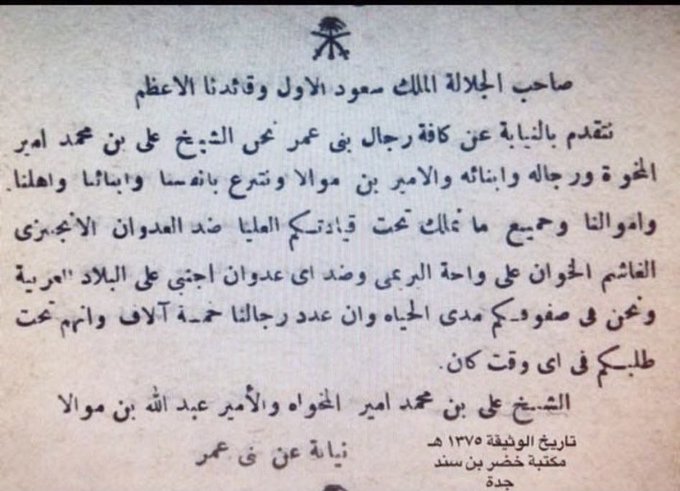 صاحب الجلالة الملك سعود الاول وقائدنا الاعظم
نتقدم بالنيابة عن كافة رجال بنى عمر نحن الشيخ على بن محمد امير
المخوة ورجاله وابنائه والامير بن موالا ونتبرع بانفسنا وابنائنا واهلنا
واموالنا وجميع ما نملك تحت قيادتكم العليا ضد العدوان الانجليزى
الغاشم الخوان على واحة البريمى وضد اى عدوان اجنبى على البلاد العربية
ونحن فى صفوفكم مدى الحياه وان عدد رجالنا خمسة آلاف وانهم تحت
طلبكم فى اى وقت كان.
الشيخ على بن محمد امير المخواه والأمير عبد الله بن موالا
نيابة عن بنى عمر
تاريخ الوثيقة ١٣٧٥ هـ
مكتبة خضر بن سند
جدة